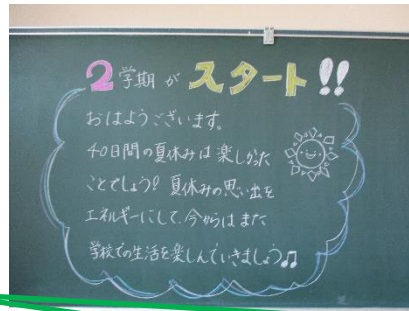 2学期がスタート!!
おはようございます。
40日間の夏休みは楽しかった
ことでしょう!夏休みの思い出を
エネルギーにして、今からはまた
学校での生活を楽しんでいきましょう♫